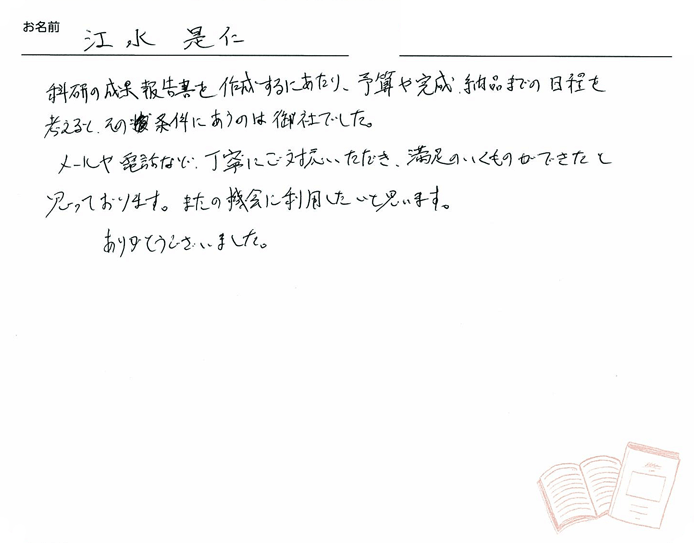 お名前 江水 是仁
科研の成果報告書を作成するにあたり、予算や完成、納品までの日程を
考えると、その条件にあうのは御社でした。
メールや電話など、丁寧にご対応いただき、満足のいくものができたと
思っております。またの機会に利用したいと思います。
ありがとうございました。